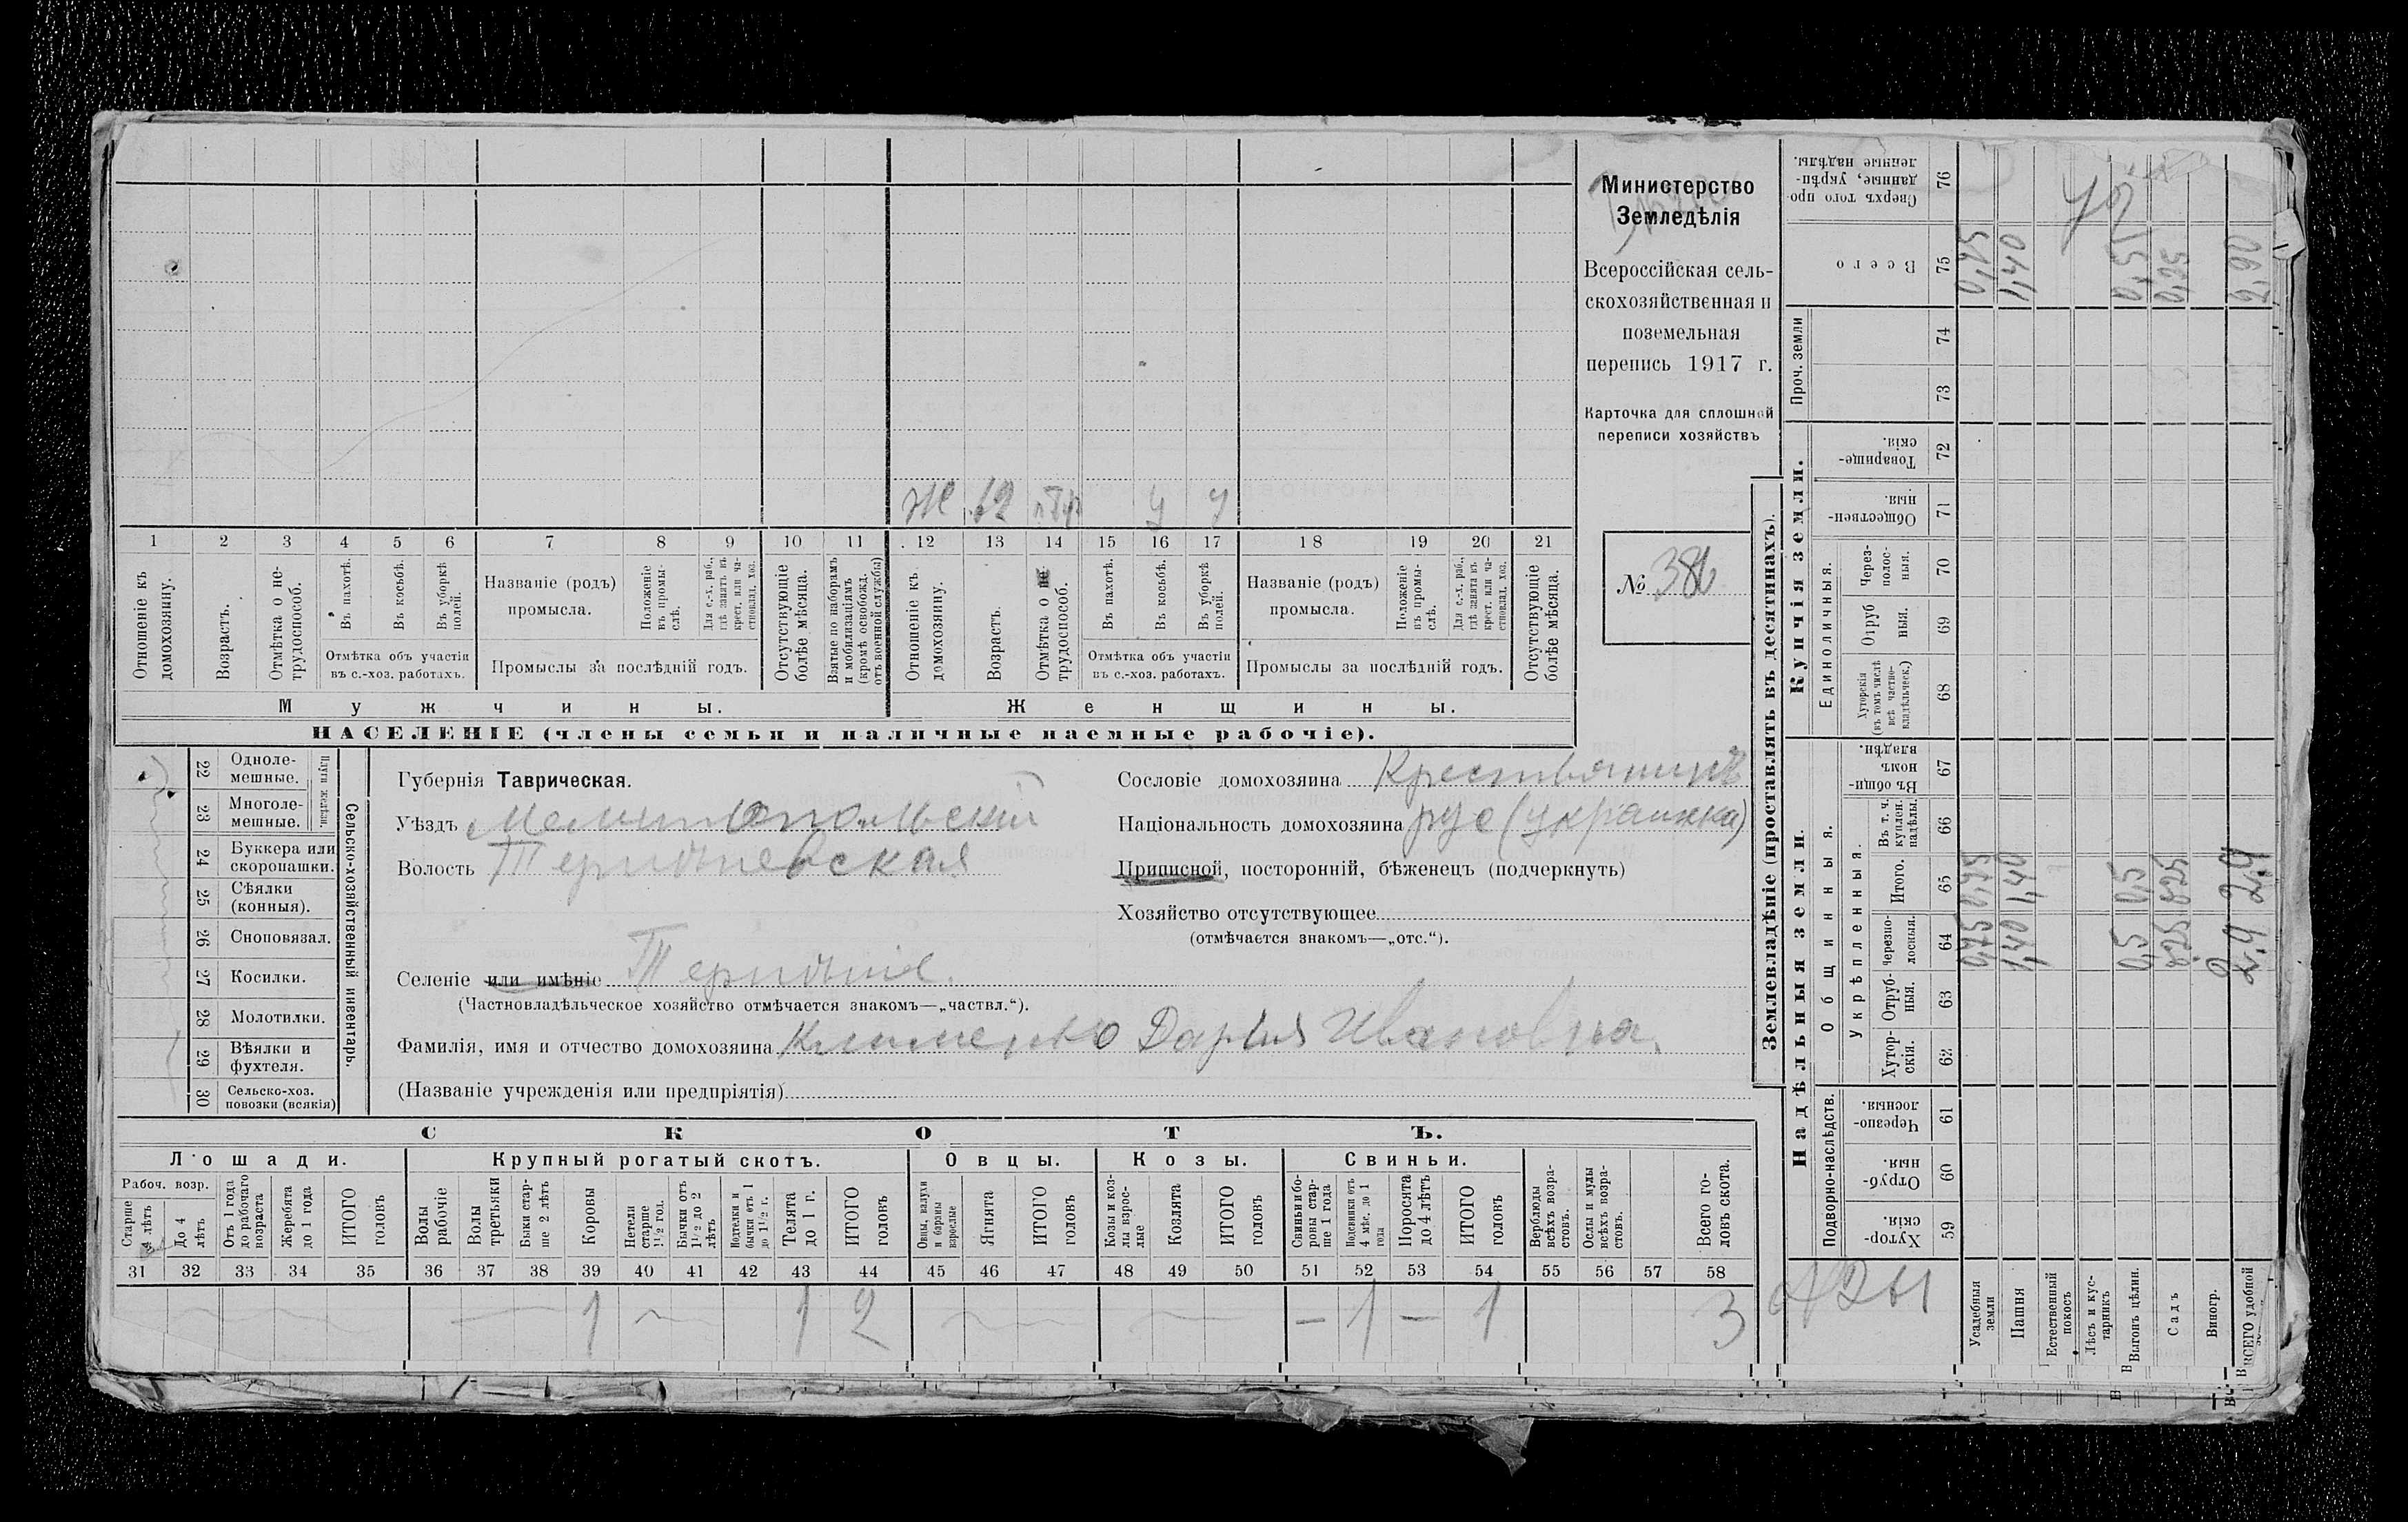 Министерство
Земледѣлія
Всероссійская сель-
скохозяйственная и
поземельная
перепись 1917 г.
Карточка для сплошной
переписи хозяйствъ
№ 386
Ж 12 у у
1 2 3 4 5 6 7 8 9 10 11 12 13 14 15 16 17 18 19 20 21
Отношеніе къ домохозяину.
Возрастъ.
Отмѣтка о не-трудоспособ.
Въ пахотѣ.
Въ косьбѣ.
Въ уборкѣ полей.
Отмѣтка объ участіи
въ с.-хоз. работахъ.
Названіе (родъ)
промысла.
Положеніе въ промы-слѣ.
Для с.-х. раб., гдѣ занятъ въ крест. или ча-стновлад. хоз.
Промыслы за послѣдній годъ.
Отсутствующіе болѣе мѣсяца.
Взятые по наборамъ и мобилизаціямъ (кромѣ освобожд. отъ военной службы)
Отношеніе къ домохозяину.
Возрастъ.
Отмѣтка о не-трудоспособ.
Въ пахотѣ.
Въ косьбѣ.
Въ уборкѣ полей.
Отмѣтка объ участіи
въ с.-хоз. работахъ.
Названіе (родъ)
промысла.
Положеніе въ промы-слѣ.
Для с.-х. раб., гдѣ занята въ крест. или ча-стновлад. хоз.
Промыслы за послѣдній годъ.
Отсутствующіе болѣе мѣсяца.
Мужчины.
Женщины.
НАСЕЛЕНІЕ (члены семьи и наличные наемные рабочіе).
22 Одноле-мешные.
23 Многоле-мешные.
Плуги желѣзн.
24 Буккера или скоропашки.
25 Сѣялки (конныя).
26 Сноповязал.
27 Косилки.
28 Молотилки.
29 Вѣялки и фухтеля.
30 Сельско-хоз. повозки (всякія)
Сельско-хозяйственный инвентарь.
Губернія Таврическая.
Уѣздъ Мелитопольскій
Волость Терпѣніевская
Селеніе или имѣніе Терпѣніе.
(Частновладѣльческое хозяйство отмѣчается знакомъ—„частвл.“).
Фамилія, имя и отчество домохозяина Клименко Дарья Ивановна.
(Названіе учрежденія или предпріятія)
Сословіе домохозяина Крестьянинъ
Національность домохозяина рус (украинка)
Приписной, посторонній, бѣженецъ (подчеркнуть)
Хозяйство отсутствующее
(отмѣчается знакомъ—„отс.“).
СКОТЪ.
Лошади.
Крупный рогатый скотъ.
Овцы.
Козы.
Свиньи.
Рабоч. возр.
Старше 4 лѣтъ
До 4 лѣтъ
Отъ 1 года до рабочаго возраста
Жеребята до 1 года
ИТОГО головъ
Волы рабочіе
Волы третьяки
Быки стар-ше 2 лѣтъ
Коровы
Нетели старше 1½ год.
Бычки отъ 1½ до 2 лѣтъ
Подтелки и бычки отъ 1 до 1½ г.
Телята до 1 г.
ИТОГО головъ
Овцы, валухи и бараны взрослые
Ягнята
ИТОГО головъ
Козы и коз-лы взрос-лые
Козлята
ИТОГО головъ
Свиньи и бо-ровы стар-ше 1 года
Подсвинки отъ 4 мѣс. до 1 года
Поросята до 4 лѣтъ
ИТОГО головъ
Верблюды всѣхъ возра-стовъ.
Ослы и мулы всѣхъ возра-стовъ.
Всего го-ловъ скота.
31 32 33 34 35 36 37 38 39 40 41 42 43 44 45 46 47 48 49 50 51 52 53 54 55 56 57 58
— 1 1 2 — 1 — 1 3
Землевладѣніе (проставлять въ десятинахъ).
Надѣльныя земли.
Купчія земли.
Проч. земли
Подворно-наслѣдств.
Общинныя.
Укрѣпленныя.
Единоличныя.
59 Хутор-скія.
60 Отруб-ныя.
61 Черезпо-лосныя.
62 Хутор-скія.
63 Отруб-ныя.
64 Черезпо-лосныя.
65 Итого.
66 Въ т. ч. куплен. надѣлы.
67 Въ общи-номъ владѣн.
68 Хуторскія (въ томъ числѣ всѣ частно-владѣльческ.)
69 Отруб ныя.
70 Через-полос-ныя.
71 Обществен-ныя.
72 Товарище-скія.
73
74
75 Всего
76 Сверхъ того про-данные, укрѣп-ленные надѣлы.
Усадебныя земли 0,75 0,75 0,75
Пашня 1,40 1,40 1,40
Естественный покосъ
Лѣсъ и кус-тарникъ
Выгонъ цѣлин. 0,5 0,5
Садъ 0,25 0,25 0,25
Виногр.
ВСЕГО удобной 2,9 2,9 2,90